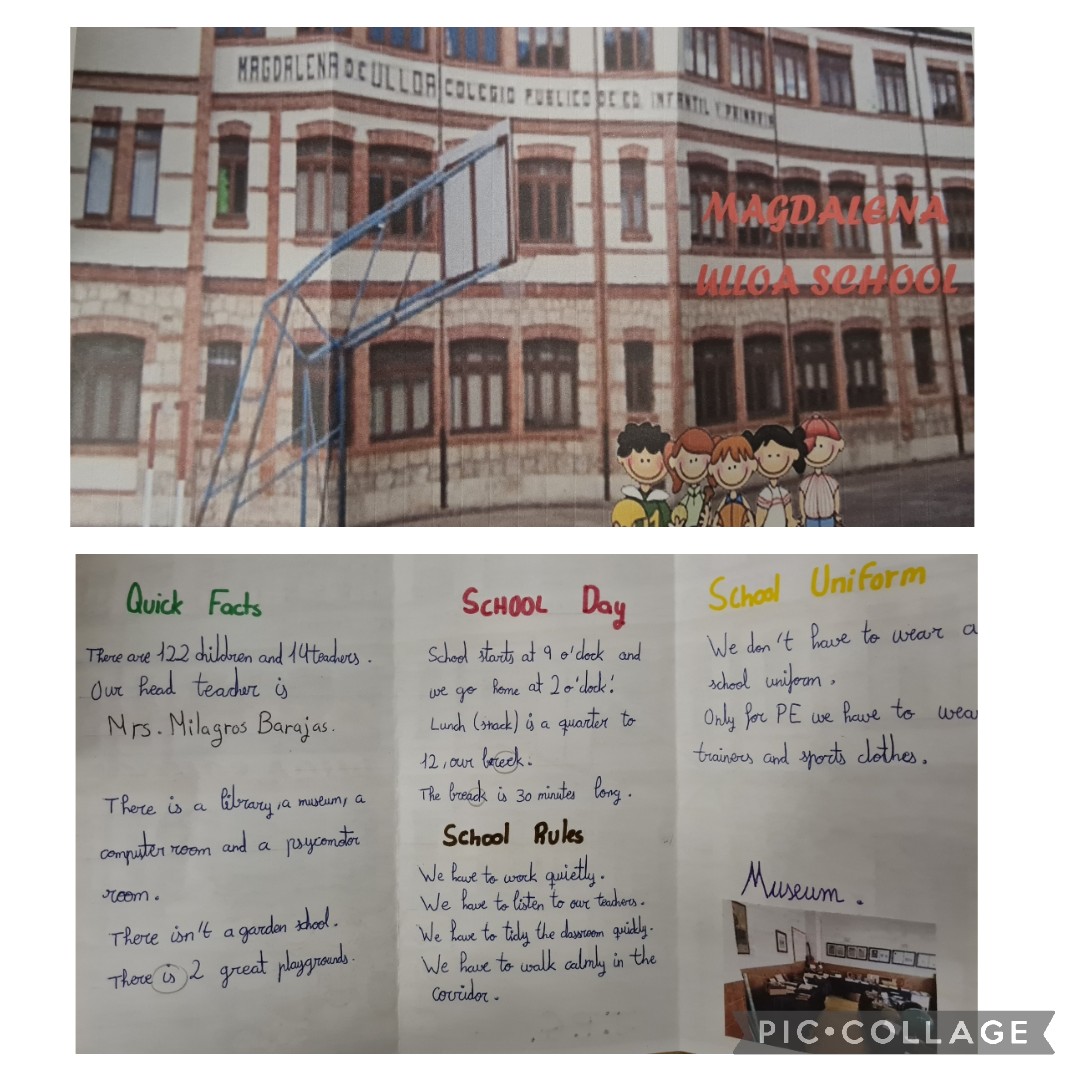 MAGDALENA DE ULLOA COLEGIO PUBLICO DE ED. INFANTIL Y PRIMARIA
MAGDALENA
ULLOA SCHOOL
Quick Facts
There are 122 children and 14 teachers.
Our head teacher is
Mrs. Milagros Barajas.
There is a library, a museum, a
computer room and a psycomotor
room.
There isn't a garden school.
There is 2 great playgrounds.
SCHOOL Day
School starts at 9 o'clock and
we go home at 2 o'clock!
Lunch (snack) is a quarter to
12, our breeck.
The breack is 30 minutes long.
School Rules
We have to work quietly.
We have to listen to our teachers.
We have to tidy the classroom quickly.
We have to walk calmly in the
corridor.
School Uniform
We don't have to wear a
school uniform.
Only for PE we have to wear
trainers and sports clothes.
Museum.
PIC•COLLAGE